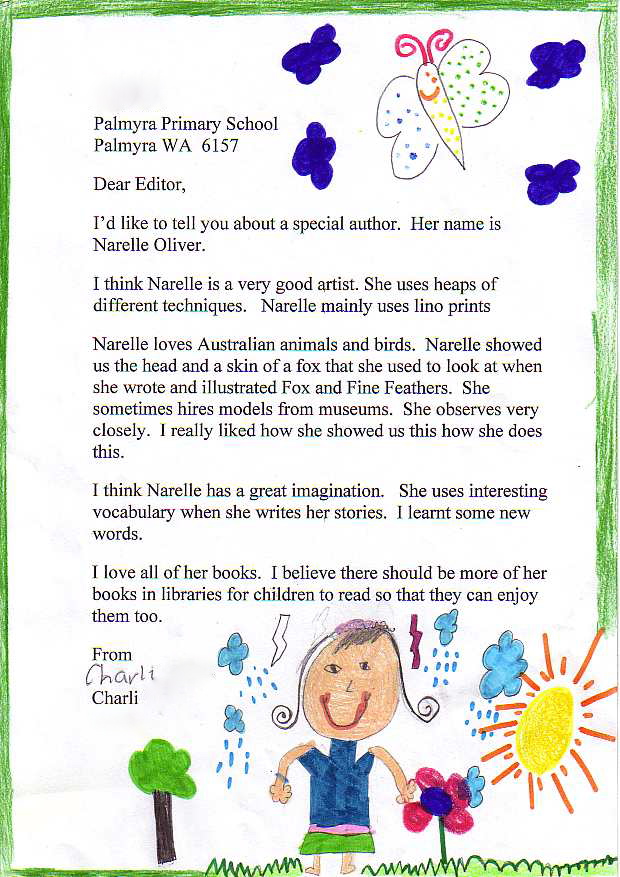 Palmyra Primary School
Palmyra WA  6157
Dear Editor,
I'd like to tell you about a special author.  Her name is
Narelle Oliver.
I think Narelle is a very good artist. She uses heaps of
different techniques.   Narelle mainly uses lino prints
Narelle loves Australian animals and birds.  Narelle showed
us the head and a skin of a fox that she used to look at when
she wrote and illustrated Fox and Fine Feathers.  She
sometimes hires models from museums.  She observes very
closely.  I really liked how she showed us this how she does
this.
I think Narelle has a great imagination.   She uses interesting
vocabulary when she writes her stories.  I learnt some new
words.
I love all of her books.  I believe there should be more of her
books in libraries for children to read so that they can enjoy
them too.
From
Charli
Charli